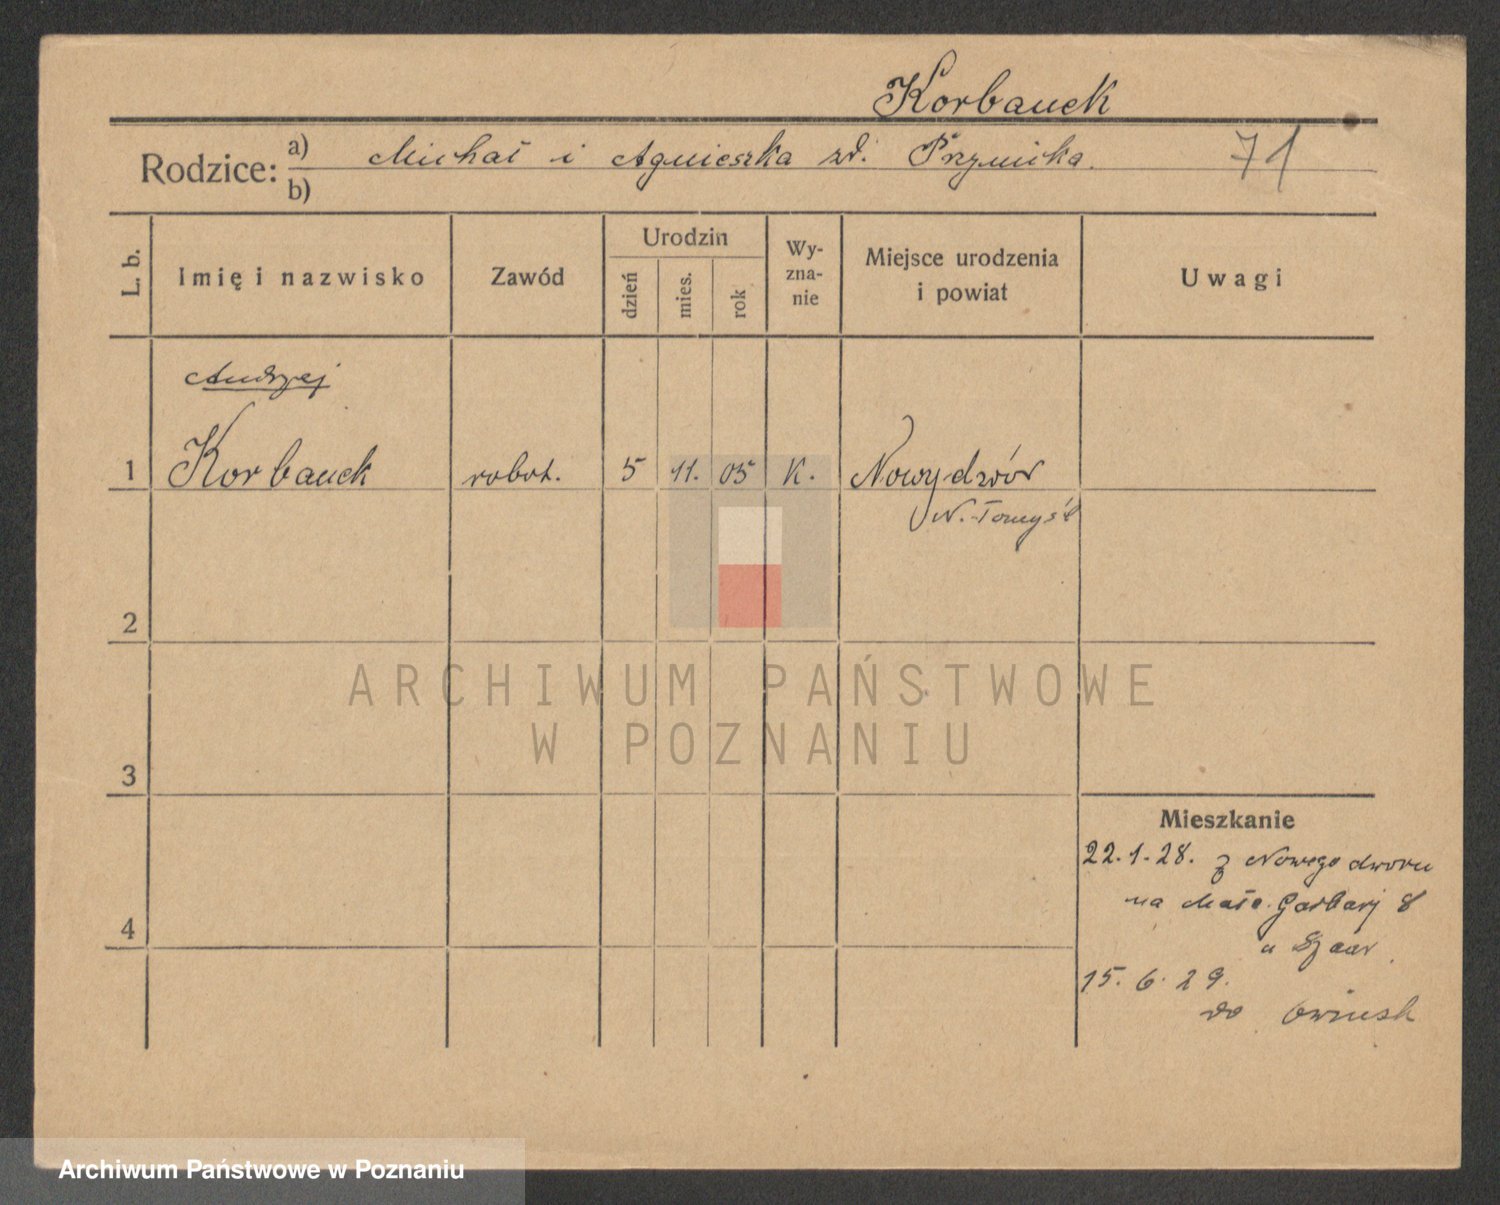 Korbanek
Rodzice: a) Michał i Agnieszka zd.
71
b)
L. b.
Imię i nazwisko
Zawód
Urodzin
dzień
mies.
rok
Wy-
zna-
nie
Miejsce urodzenia
i powiat
Uwagi
Andrzej
1 Korbanek robot. 5 11. 05 K. Nowydwór
N. Tomyśl
2
3
4
Mieszkanie
22.1.28. z Nowego dworu
na Małe Garbary 8
u
15.6.29.
do Owińsk
ARCHIWUM PAŃSTWOWE
W POZNANIU
Archiwum Państwowe w Poznaniu